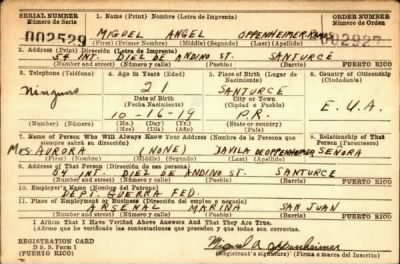 SERIAL NUMBER
Número de Serie
1. Name (Print) Nombre (Letra de Imprenta)
ORDER NUMBER
Número de Orden
002529
MIGUEL ANGEL OPPENHEIMER-RAMOS
002927
(First) (Primer Nombre) (Middle) (Segundo) (Last) (Apellido)
2. Address (Print) Dirección (Letra de Imprenta)
54 INT. DIEZ DE ANDINO ST. SANTURCE
(Number and street) (Número y calle) (Place) (Lugar) PUERTO RICO
3. Telephone (Teléfono)
4. Age in Years (Edad)
5. Place of Birth (Lugar de Nacimiento)
6. Country of Citizenship (Ciudadanía)
Ninguno
21
SANTURCE
E. U. A.
Date of Birth
(Fecha Nacimiento)
City or Town
(Ciudad o Pueblo)
10-16-19
P.R.
(Mo.) (Day) (Yr.)
(Mes) (Día) (Año)
State or country
(Estado o país)
7. Name of Person Who Will Always Know Your Address (Nombre de la Persona que siempre sabrá su dirección)
8. Relationship of That Person (Parentesco)
Mrs. AURORA (NONE) DAVILA DE OPPENHEIMER SEÑORA
(First) (Nombre) (Middle) (Segundo) (Last) (Apellido)
9. Address of That Person (Dirección de esa persona)
54 INT. DIEZ DE ANDINO ST. SANTURCE
(Number and street) (Número y calle) (Place) (Lugar) PUERTO RICO
10. Employer's Name (Nombre del Patrono)
DEPT. GUERRA FED.
11. Place of Employment or Business (Dirección del empleo o negocio)
ARSENAL MARINA SAN JUAN
(Number and street) (Número y calle) (Place) (Lugar) PUERTO RICO
I Affirm That I Have Verified Above Answers And That They Are True.
(Afirmo que he verificado las contestaciones que preceden y que éstas son ciertas.)
REGISTRATION CARD
D. S. R. Form 1
(PUERTO RICO)
Miguel A. Oppenheimer
(Registrant's signature) (Firma o marca del Inscrito)